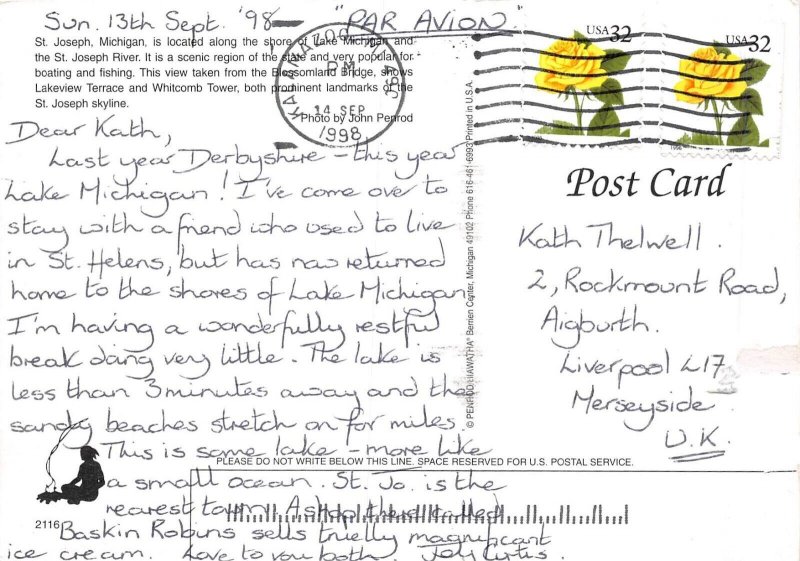 Sun. 13th Sept. '98 — "PAR AVION"
St. Joseph, Michigan, is located along the shore of Lake Michigan and
the St. Joseph River. It is a scenic region of the state and very popular for
boating and fishing. This view taken from the Blossomland Bridge, shows
Lakeview Terrace and Whitcomb Tower, both prominent landmarks of the
St. Joseph skyline.
Photo by John Penrod
KALAMAZOO
PM
14 SEP
1998
USA 32
USA 32
Dear Kath,
Last year Derbyshire – this year
Lake Michigan! I've come over to
stay with a friend who used to live
in St. Helens, but has now returned
home to the shores of Lake Michigan
I'm having a wonderfully restful
break doing very little. The lake is
less than 3 minutes away and the
sandy beaches stretch on for miles.
This is some lake – more like
a small ocean. St. Jo. is the
nearest town. A shop there called
Baskin Robins sells truelly magnificant
ice cream. Love to you both. Joh Curtis.
© PENROD/HIAWATHA® Berrien Center, Michigan 49102 Phone 616-461-6993 Printed in U.S.A.
Post Card
Kath Thelwell.
2, Rockmount Road,
Aigburth.
Liverpool L17
Merseyside.
U.K.
PLEASE DO NOT WRITE BELOW THIS LINE. SPACE RESERVED FOR U.S. POSTAL SERVICE.
2116